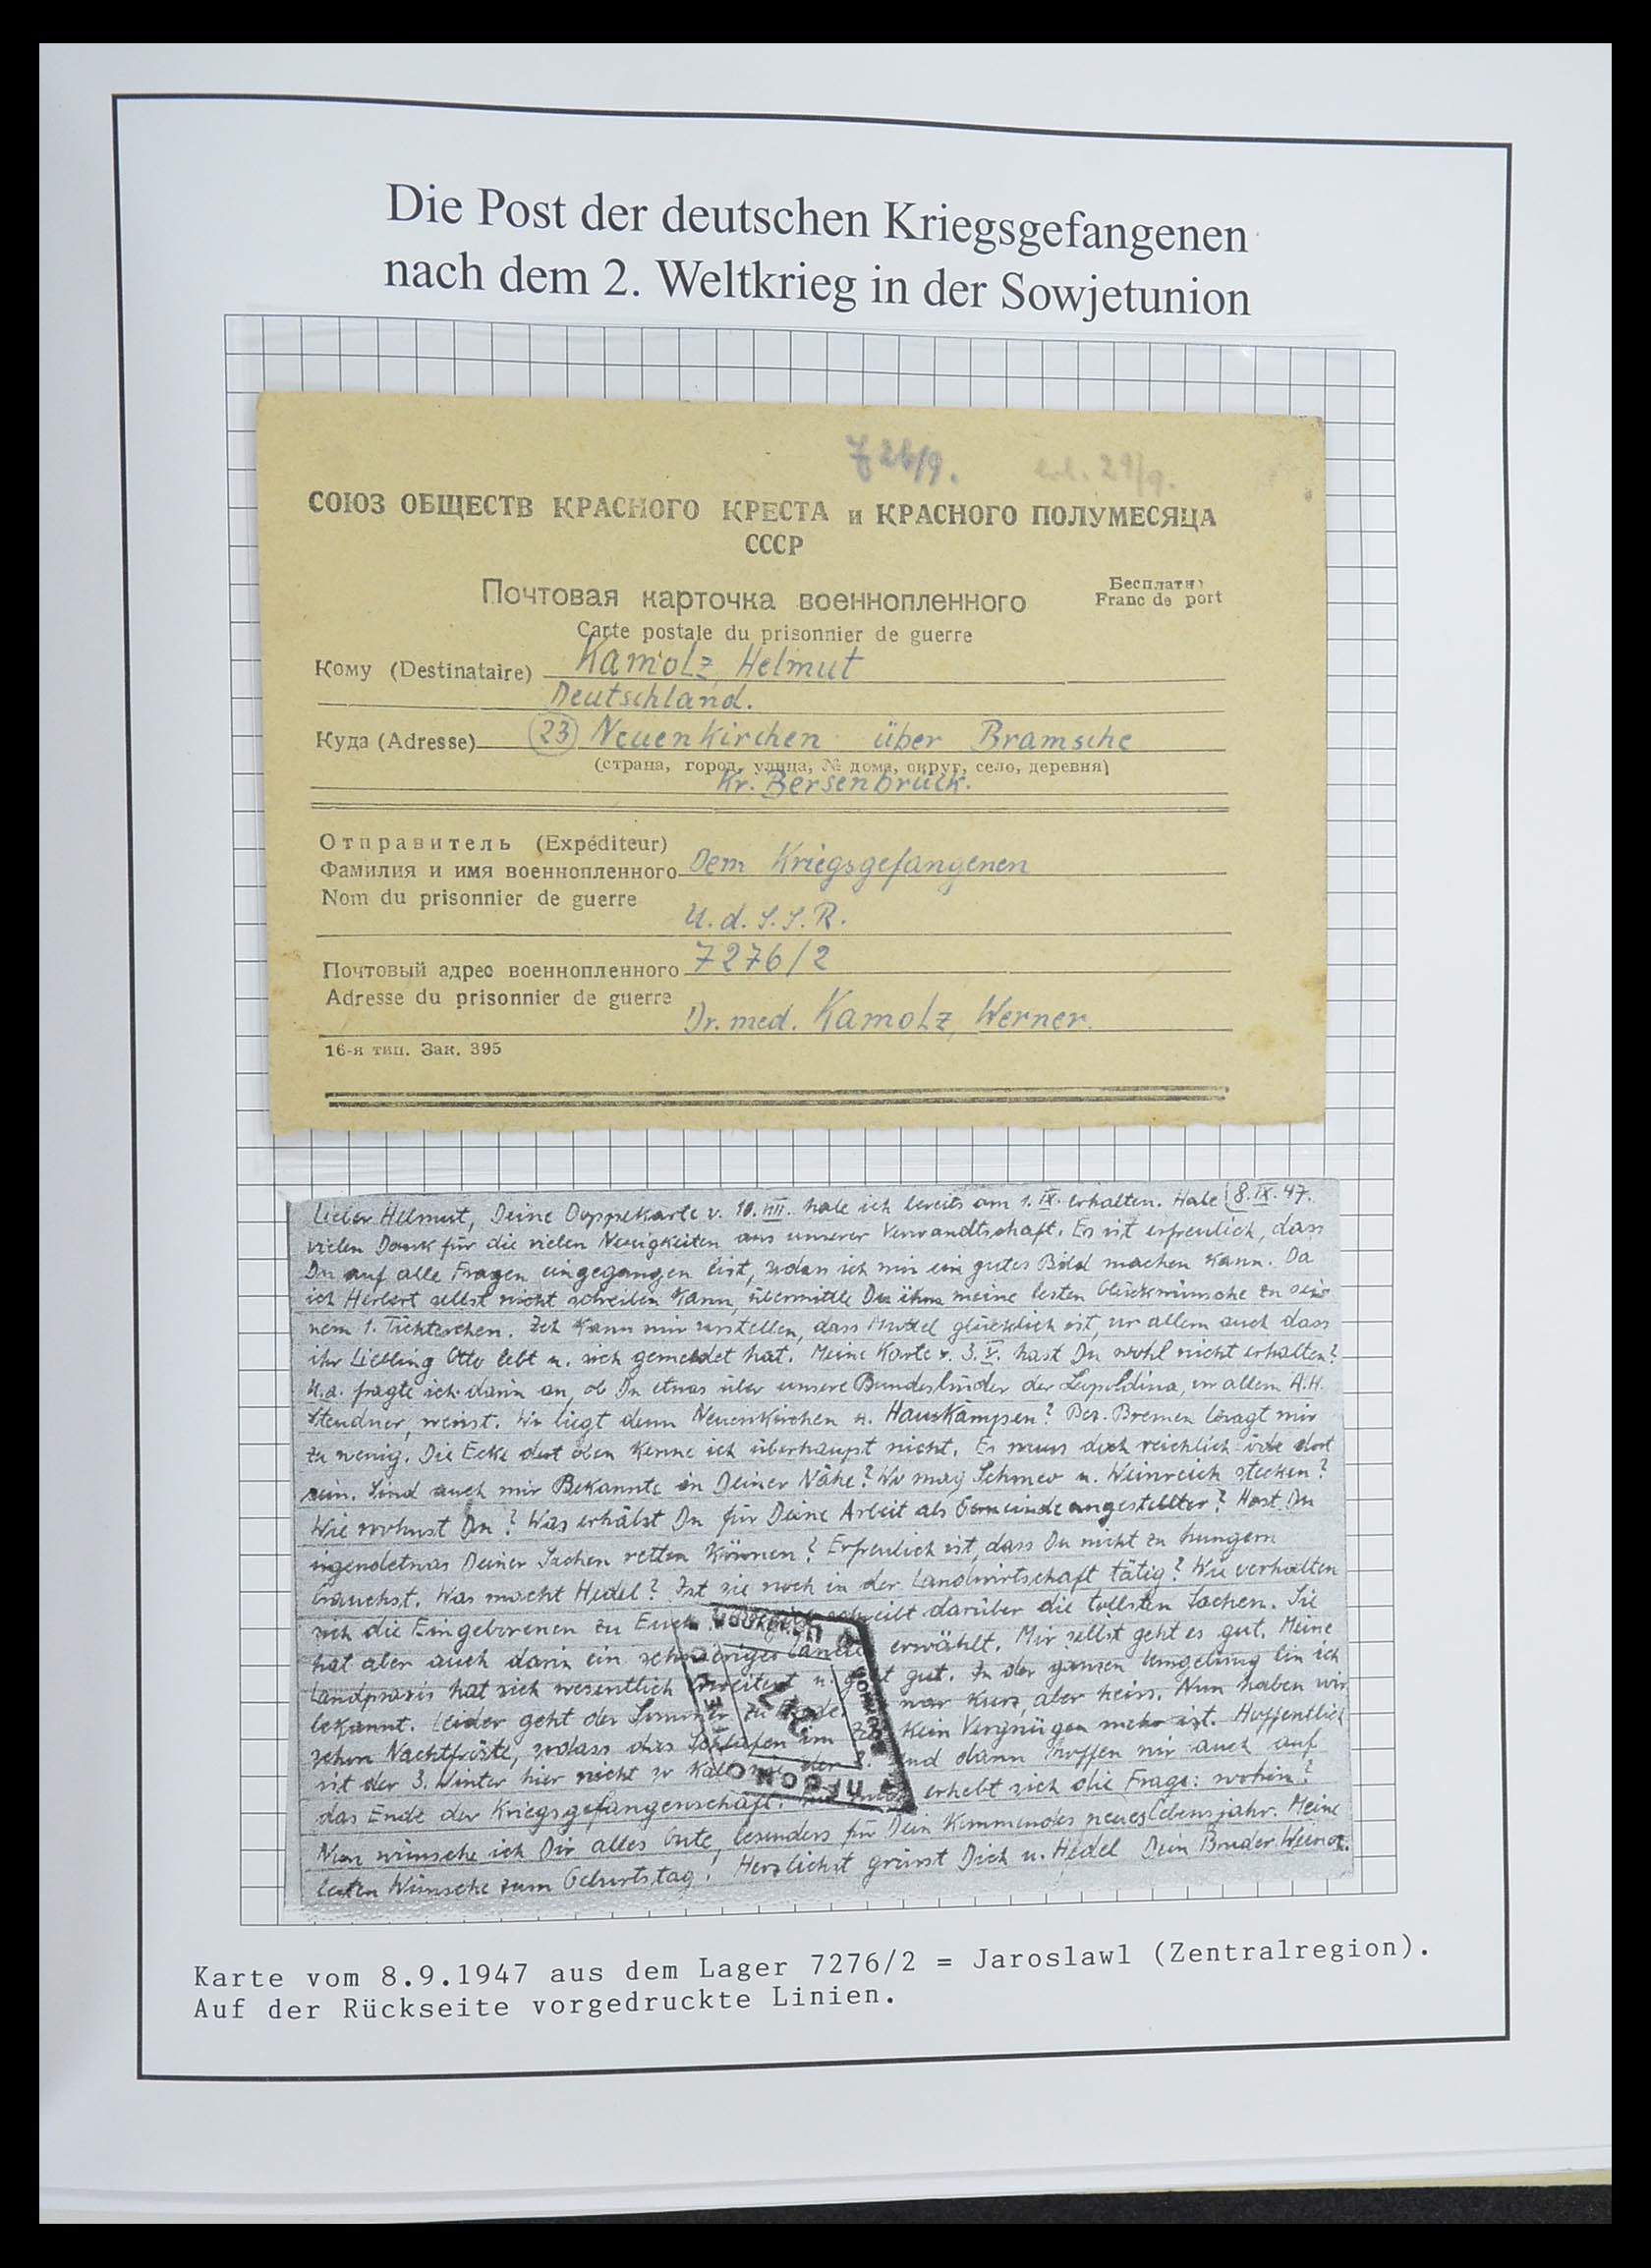 Die Post der deutschen Kriegsgefangenen
nach dem 2. Weltkrieg in der Sowjetunion
26/9. 29/9.
СОЮЗ ОБЩЕСТВ КРАСНОГО КРЕСТА и КРАСНОГО ПОЛУМЕСЯЦА
СССР
Почтовая карточка военнопленного
Бесплатно
Franc de port
Carte postale du prisonnier de guerre
Кому (Destinataire) Kamolz, Helmut
Deutschland.
Куда (Adresse) (23) Neuenkirchen über Bramsche
(страна, город, улица, № дома, округ, село, деревня)
Kr. Bersenbrück.
Отправитель (Expéditeur)
Фамилия и имя военнопленного Dem Kriegsgefangenen
Nom du prisonnier de guerre
U.d.S.S.R.
Почтовый адрес военнопленного 7276/2
Adresse du prisonnier de guerre
Dr. med. Kamolz, Werner.
16-я тип. Зак. 395
Lieber Helmut, Deine Doppelkarte v. 10.VIII. habe ich bereits am 1.IX. erhalten. Habe 8.IX.47.
vielen Dank für die vielen Neuigkeiten aus unserer Verwandtschaft. Es ist erfreulich, dass
Du auf alle Fragen eingegangen bist, sodass ich mir ein gutes Bild machen kann. Da
ich Herbert selbst nicht schreiben kann, übermittle Du ihm meine besten Glückwünsche zu sei-
nem 1. Töchterchen. Ich kann mir vorstellen, dass Muttel glücklich ist, vor allem auch dass
ihr Liebling Otto lebt u. sich gemeldet hat. Meine Karte v. 3.V. hast Du wohl nicht erhalten?
U.a. fragte ich darin an, ob Du etwas über unsere Bundesbrüder der Leopoldina, vor allem A.H.
Steudner, weisst. Wo liegt denn Neuenkirchen u. Hauskämpen? Bez. Bremen besagt mir
zu wenig. Die Ecke dort oben kenne ich überhaupt nicht. Es muss doch reichlich öde dort
sein. Sind auch mir Bekannte in Deiner Nähe? Wo mag u. Weinreich stecken?
Wie wohnst Du? Was erhälst Du für Deine Arbeit als Gemeindeangestellter? Hast Du
irgendetwas Deiner Sachen retten können? Erfreulich ist, dass Du nicht zu hungern
brauchst. Was macht Hedel? Ist sie noch in der Landwirtschaft tätig? Wie verhalten
sich die Eingeborenen zu Euch? schreibt darüber die tollsten Sachen. Sie
hat aber auch darin ein schwieriges erwählt. Mir selbst geht es gut. Meine
Landpraxis hat sich wesentlich erweitert u. geht gut. In der ganzen Umgebung bin ich
bekannt. Leider geht der Sommer zu Ende. war kurz, aber heiss. Nun haben wir
schon Nachtfröste, sodass das Schlafen im Zelt kein Vergnügen mehr ist. Hoffentlich
ist der 3. Winter hier nicht so kalt wie der 2. Und dann hoffen wir auch auf
das Ende der Kriegsgefangenschaft. erhebt sich die Frage: wohin?
Nun wünsche ich Dir alles Gute, besonders für Dein kommendes neues Lebensjahr. Meine
besten Wünsche zum Geburtstag! Herzlichst grüsst Dich u. Hedel Dein Bruder Werner.
Karte vom 8.9.1947 aus dem Lager 7276/2 = Jaroslawl (Zentralregion).
Auf der Rückseite vorgedruckte Linien.